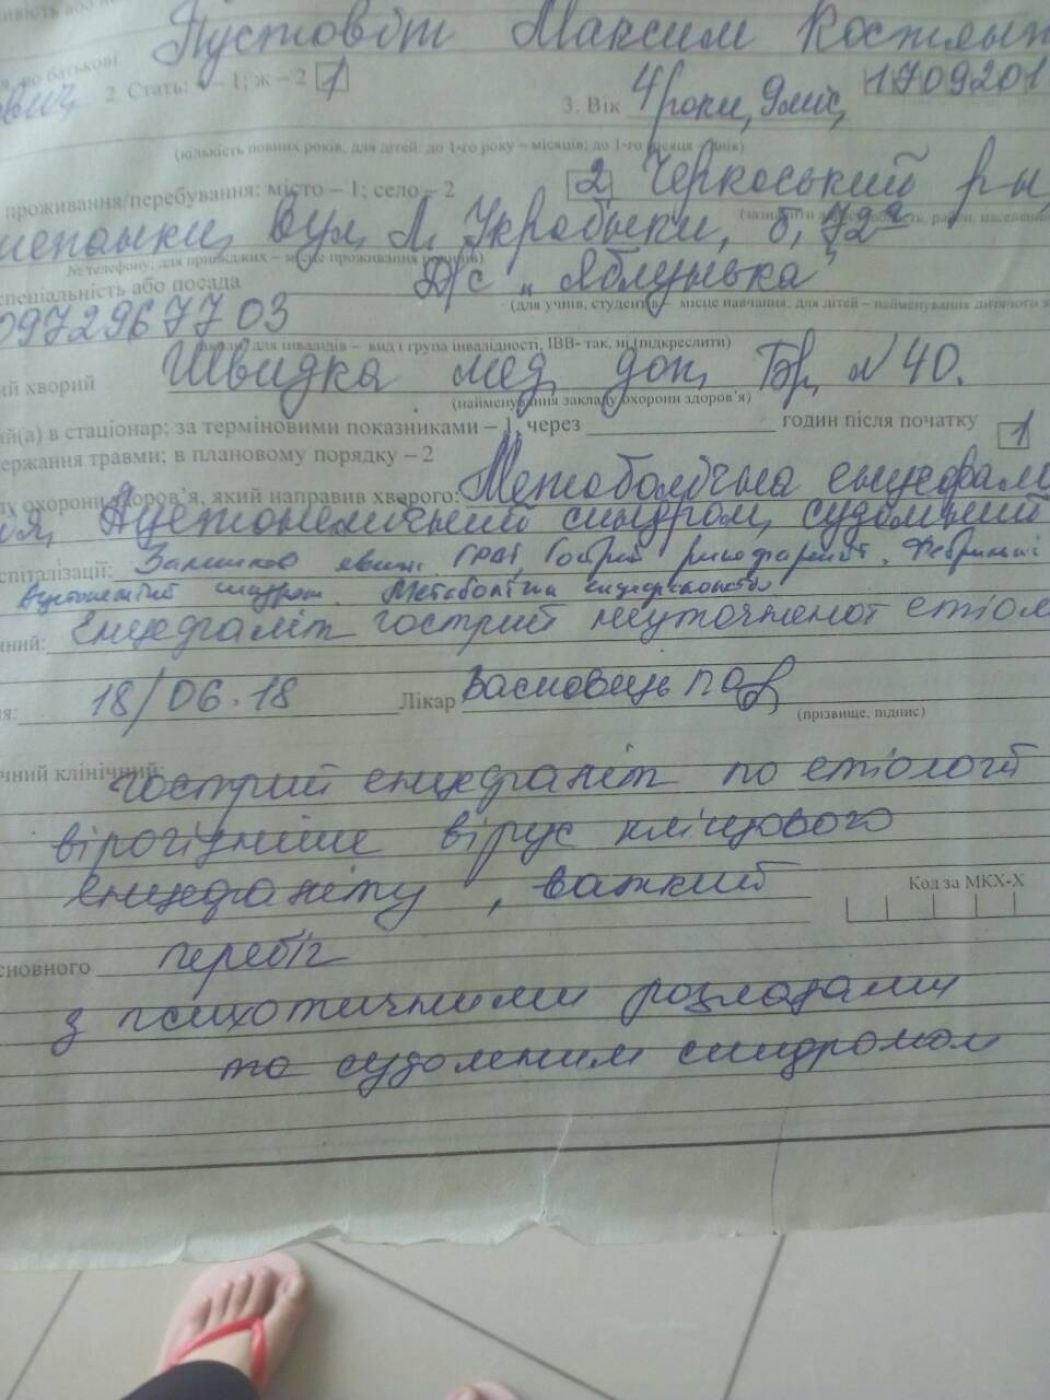 Пустовіт Максим Костянт
я, по батькові
ович 2. Стать: – 1; ж – 2 1 3. Вік 4 роки, 9 міс, 1709201
(кількість повних років, для дітей: до 1-го року – місяців; до 1-го місяця – днів)
проживання/перебування: місто – 1; село – 2 2 Черкаський р-н,
вул. Л. Українки, б, 72а
№ телефону; для приїжджих – місце проживання
спеціальність або посада Д/с „Яблунька"
(для учнів, студентів – місце навчання; для дітей – найменування дитячого з
0972967703
для інвалідів – вид і група інвалідності, ІВВ- так, ні (підкреслити)
ий хворий Швидка мед. доп. Бр. №40.
(найменування закладу охорони здоров'я)
ий(а) в стаціонар: за терміновими показниками – 1, через годин після початку 1
держання травми; в плановому порядку – 2
ду охорони здоров'я, який направив хворого: Метаболічна енцефало
ія, Ацетонемічний синдром, судомний
спіталізації: Залишкові явища ГРВІ, Гострий ринофарингіт. Фебрильні
Ацетонемічний синдром. Метаболічна енцефалопатія
нний: Енцефаліт гострий неуточненої етіол
ня: 18/06.18 Лікар
(прізвище, підпис)
чний клінічний:
гострий енцефаліт по етіології
вірогідніше вірус кліщового
енцефаліту, важкий
Код за МКХ-Х
сновного перебіг
з психотичними розладами
та судомним синдромом